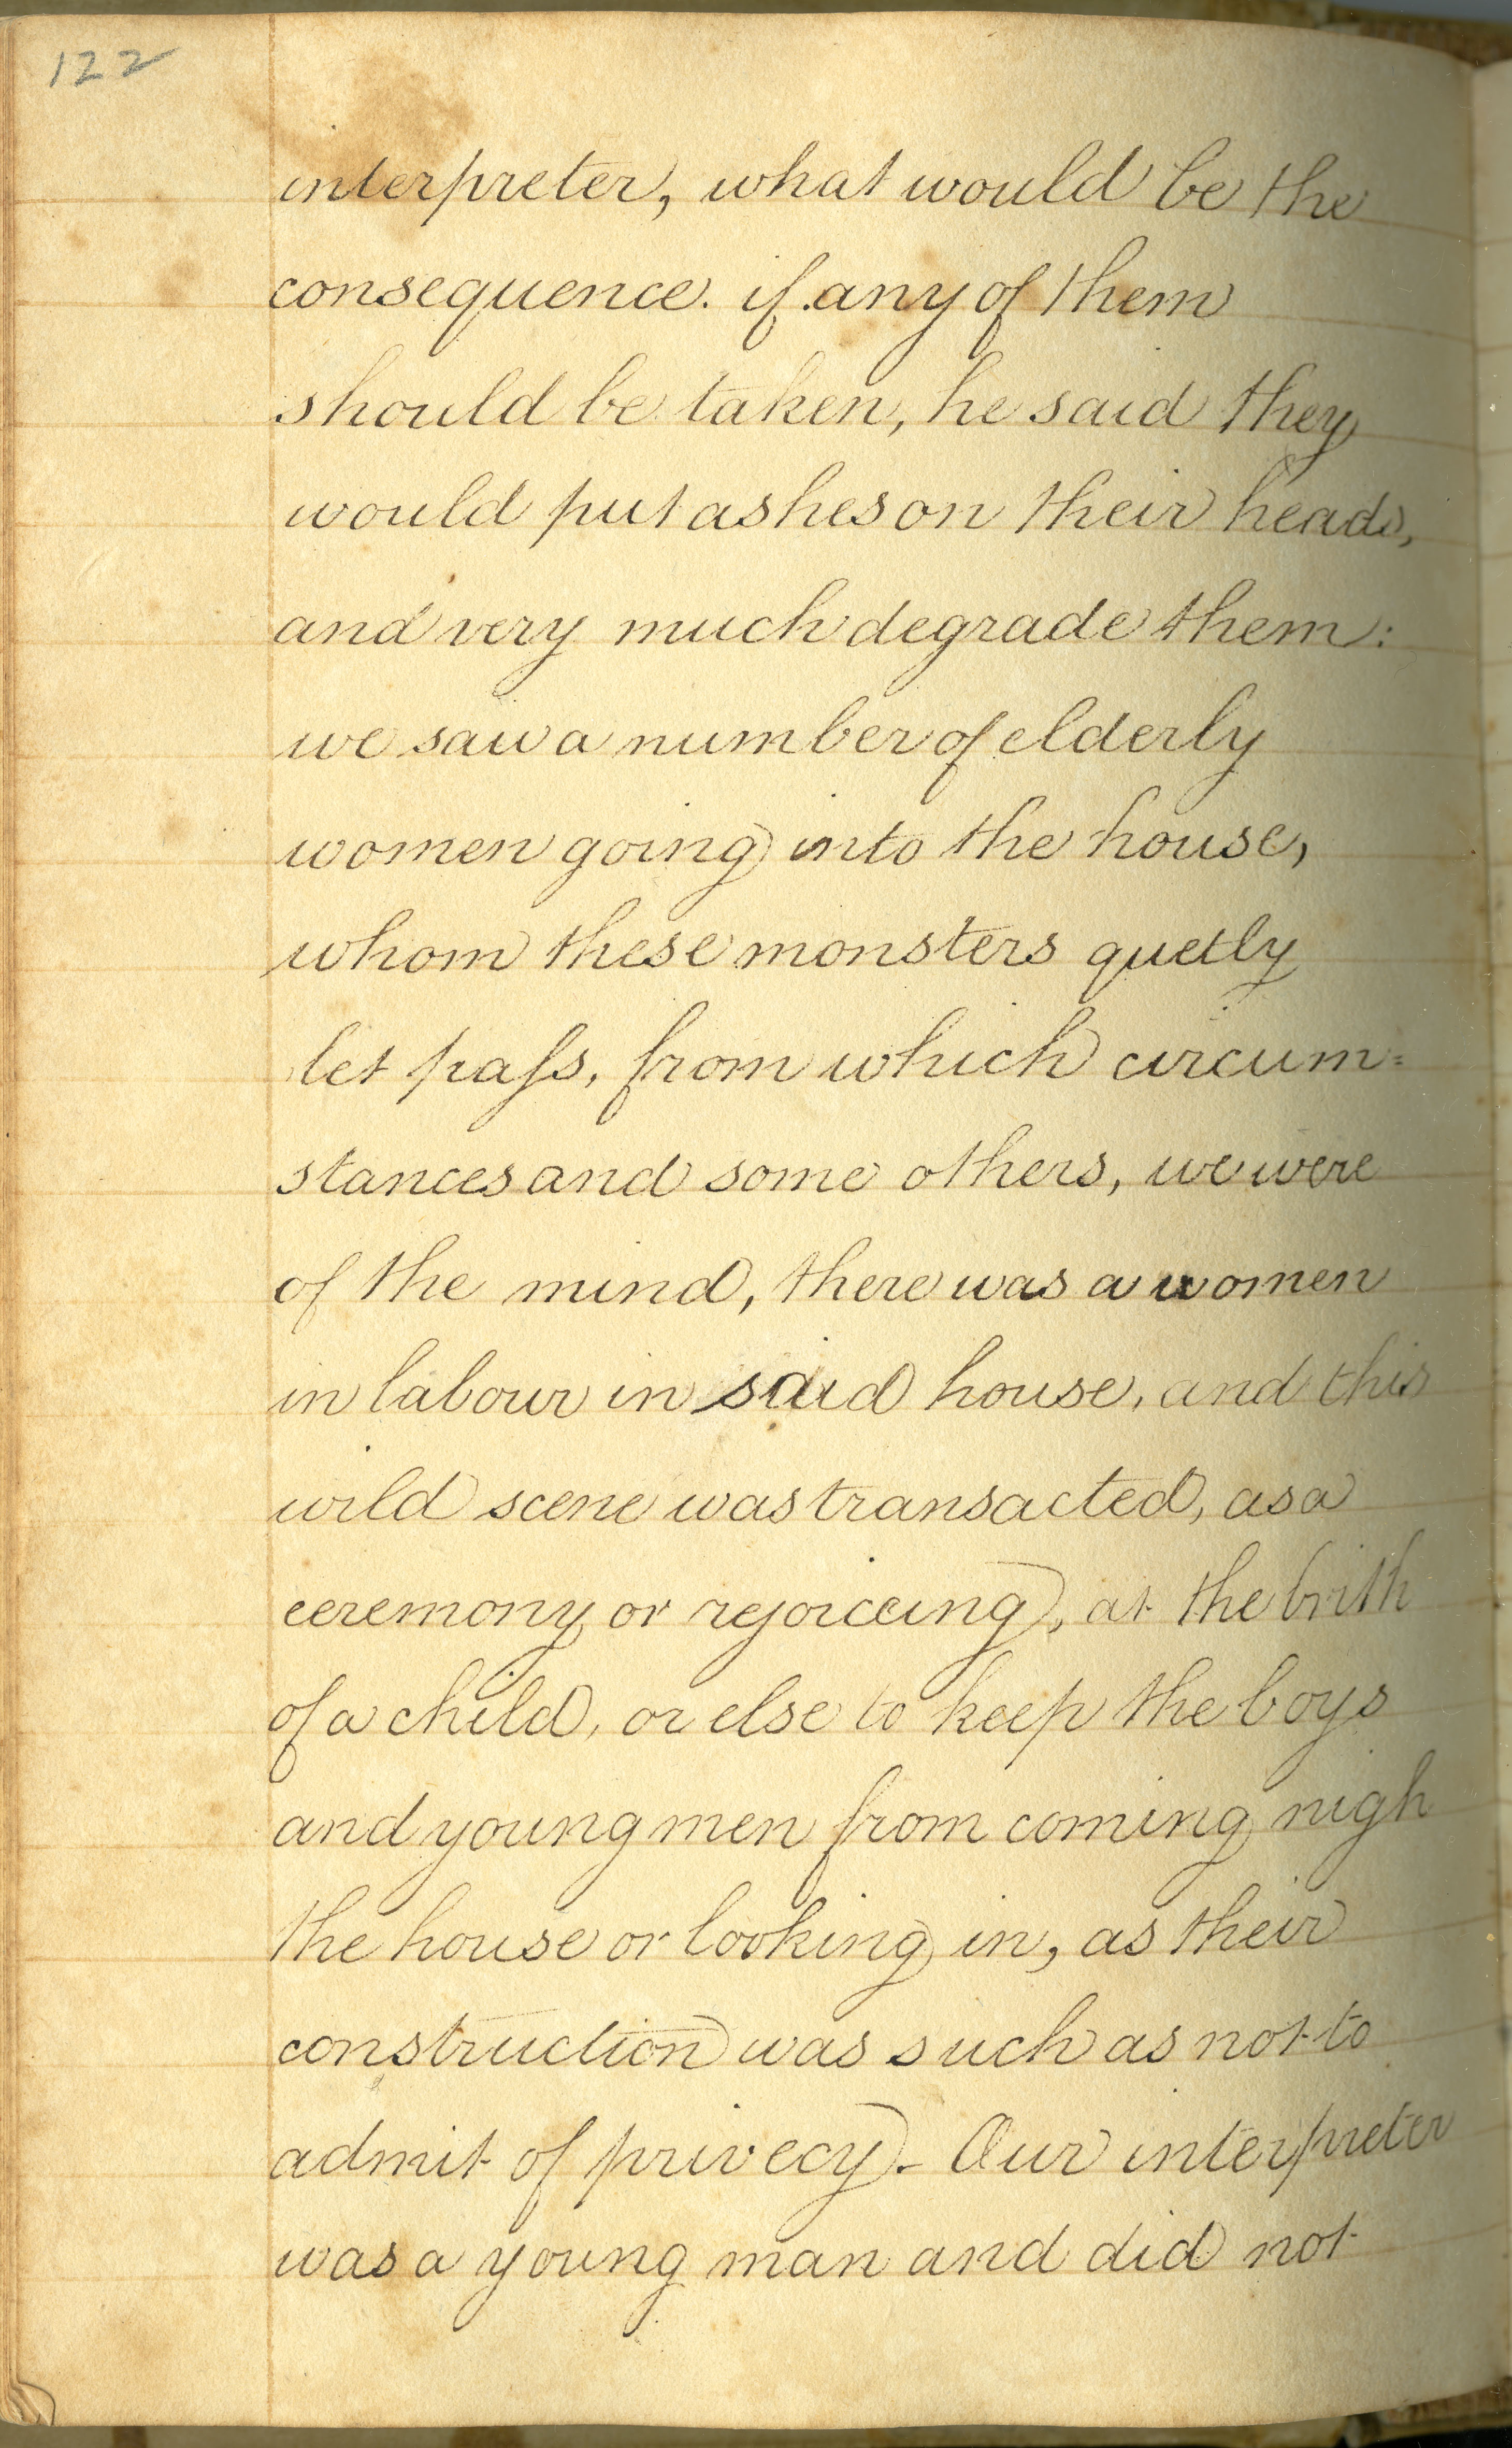 122
interpreter, what would be the
consequence. if any of them
should be taken, he said they
would put ashes on their heads,
and very much degrade them:
we saw a number of elderly
women going into the house,
whom these monsters quetly
let paſs, from which circum=
stances and some others, we were
of the mind, there was a women
in labour in said house, and this
wild scene was transacted, as a
ceremony or rejoiceing, at the brith
of a child, or else to keep the boys
and young men from coming nigh
the house or looking in, as their
construction was such as not to
admit of privecy. Our interpreter
was a young man and did not